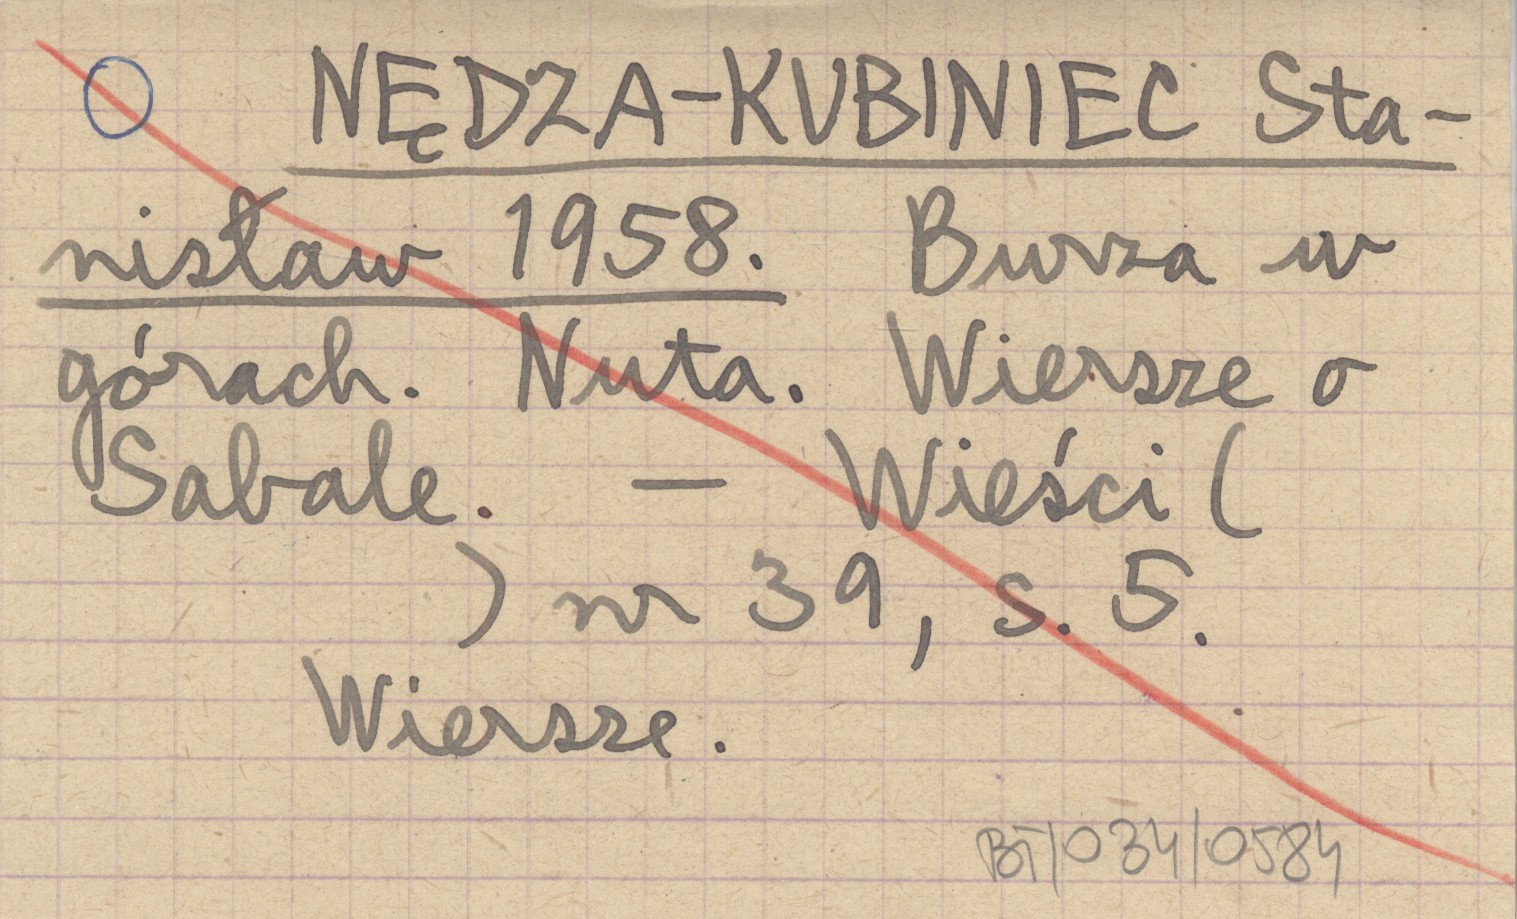 NĘDZA-KUBINIEC Sta-
nisław 1958. Burza w
górach. Nuta. Wiersze o
Sabale. — Wieści (
) nr 39, s. 5.
Wiersze.
BT/034/0584